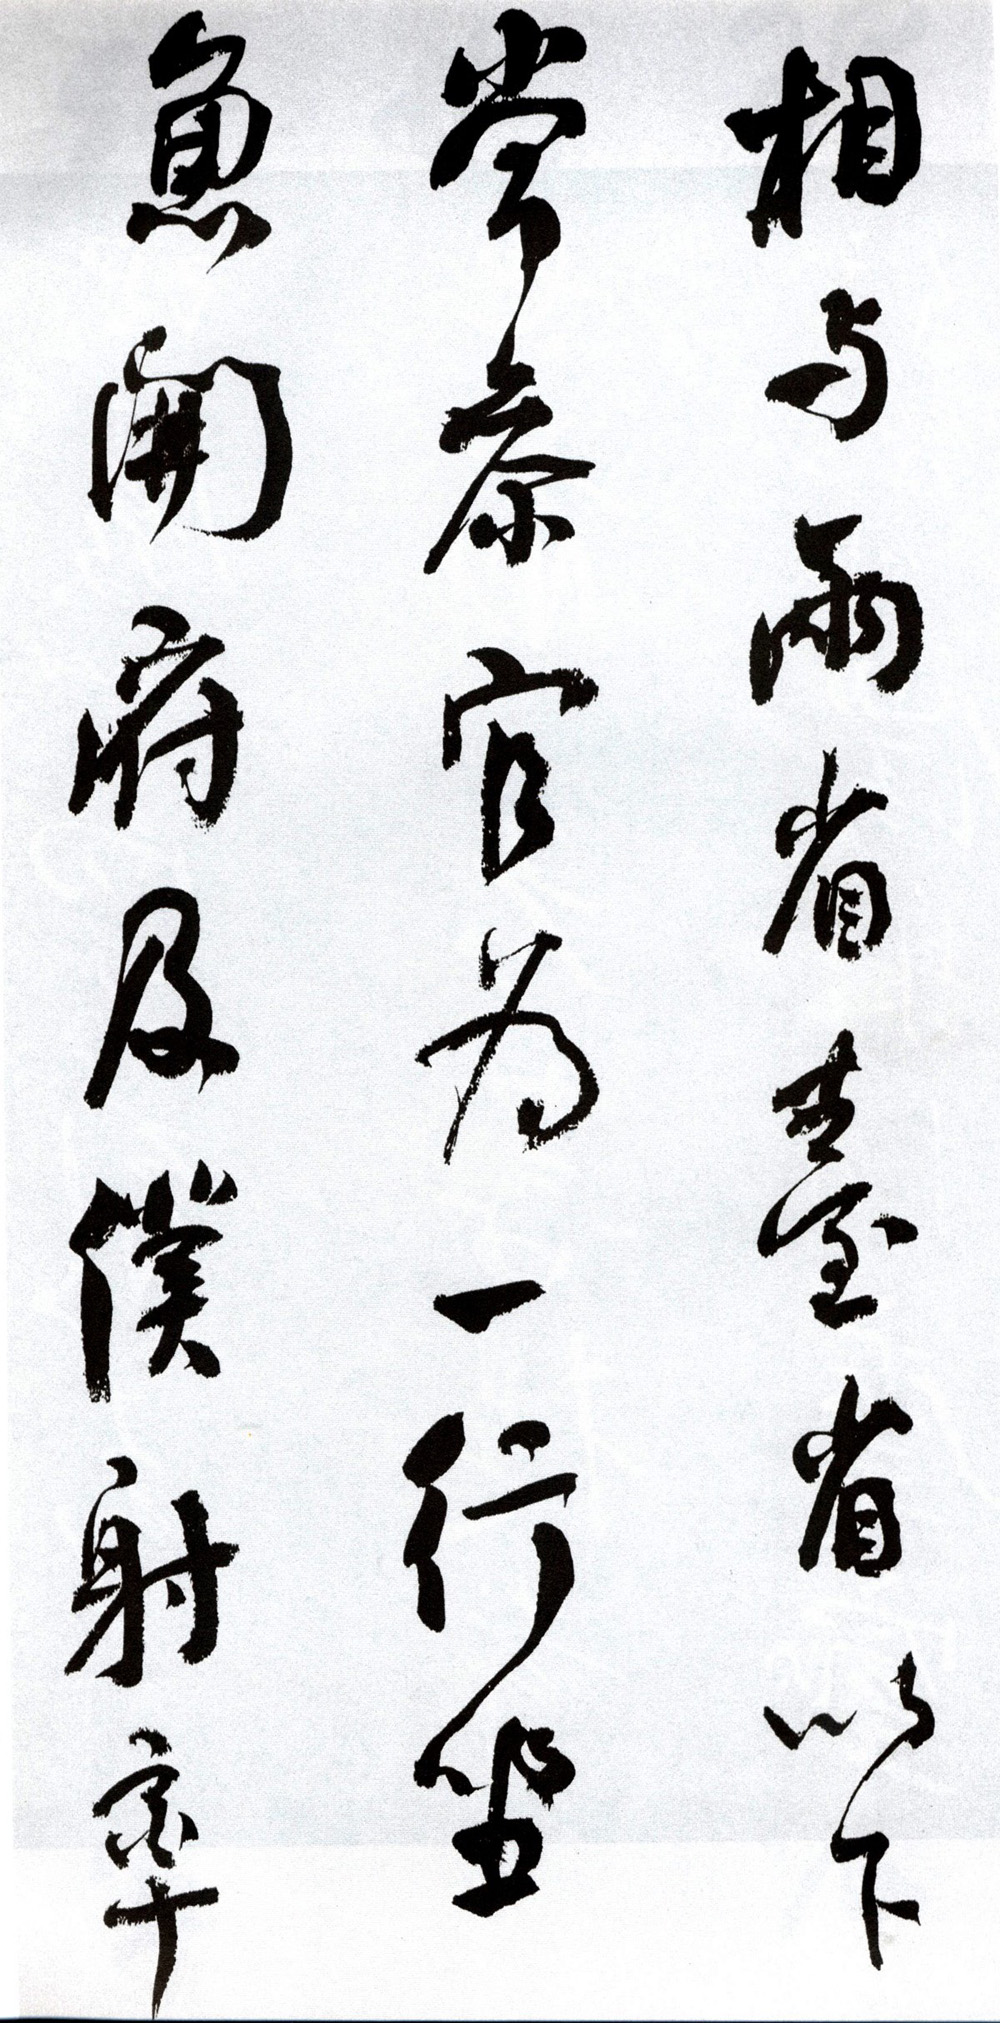 相与兩省臺省以下
常參官為一行坐
魚開府及僕射率